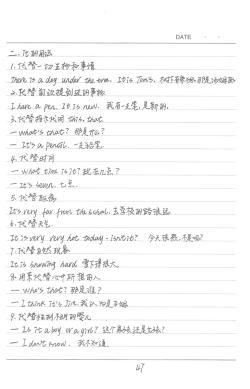 DATE
二. it的用法
1. 代替一切生物和事情
there is a dog under the tree. It is Tom's.
2. 代替前边提到过的事物
I have a pen. It is new. 我有一支笔,是新的.
3. 代替指示代词 this, that
— what's that? 那是什么?
— It's a pencil. 一支铅笔
4. 代替时间
— What time is it? 现在几点?
— It's seven. 七点.
5. 代替距离
It's very far from the school. 去学校的路很远
6. 代替天气
It is very very hot today - isn't it? 今天很热,不是吗?
7. 代替自然现象
It is snowing hard 雪下得很大
8. 用来代替心中所指的人
— Who's that? 那是谁?
— I think it's Jim. 我认为是吉姆
9. 代替性别不明的婴儿
— Is it a boy or a girl? 这个是男孩还是女孩?
— I don't know. 我不知道
47